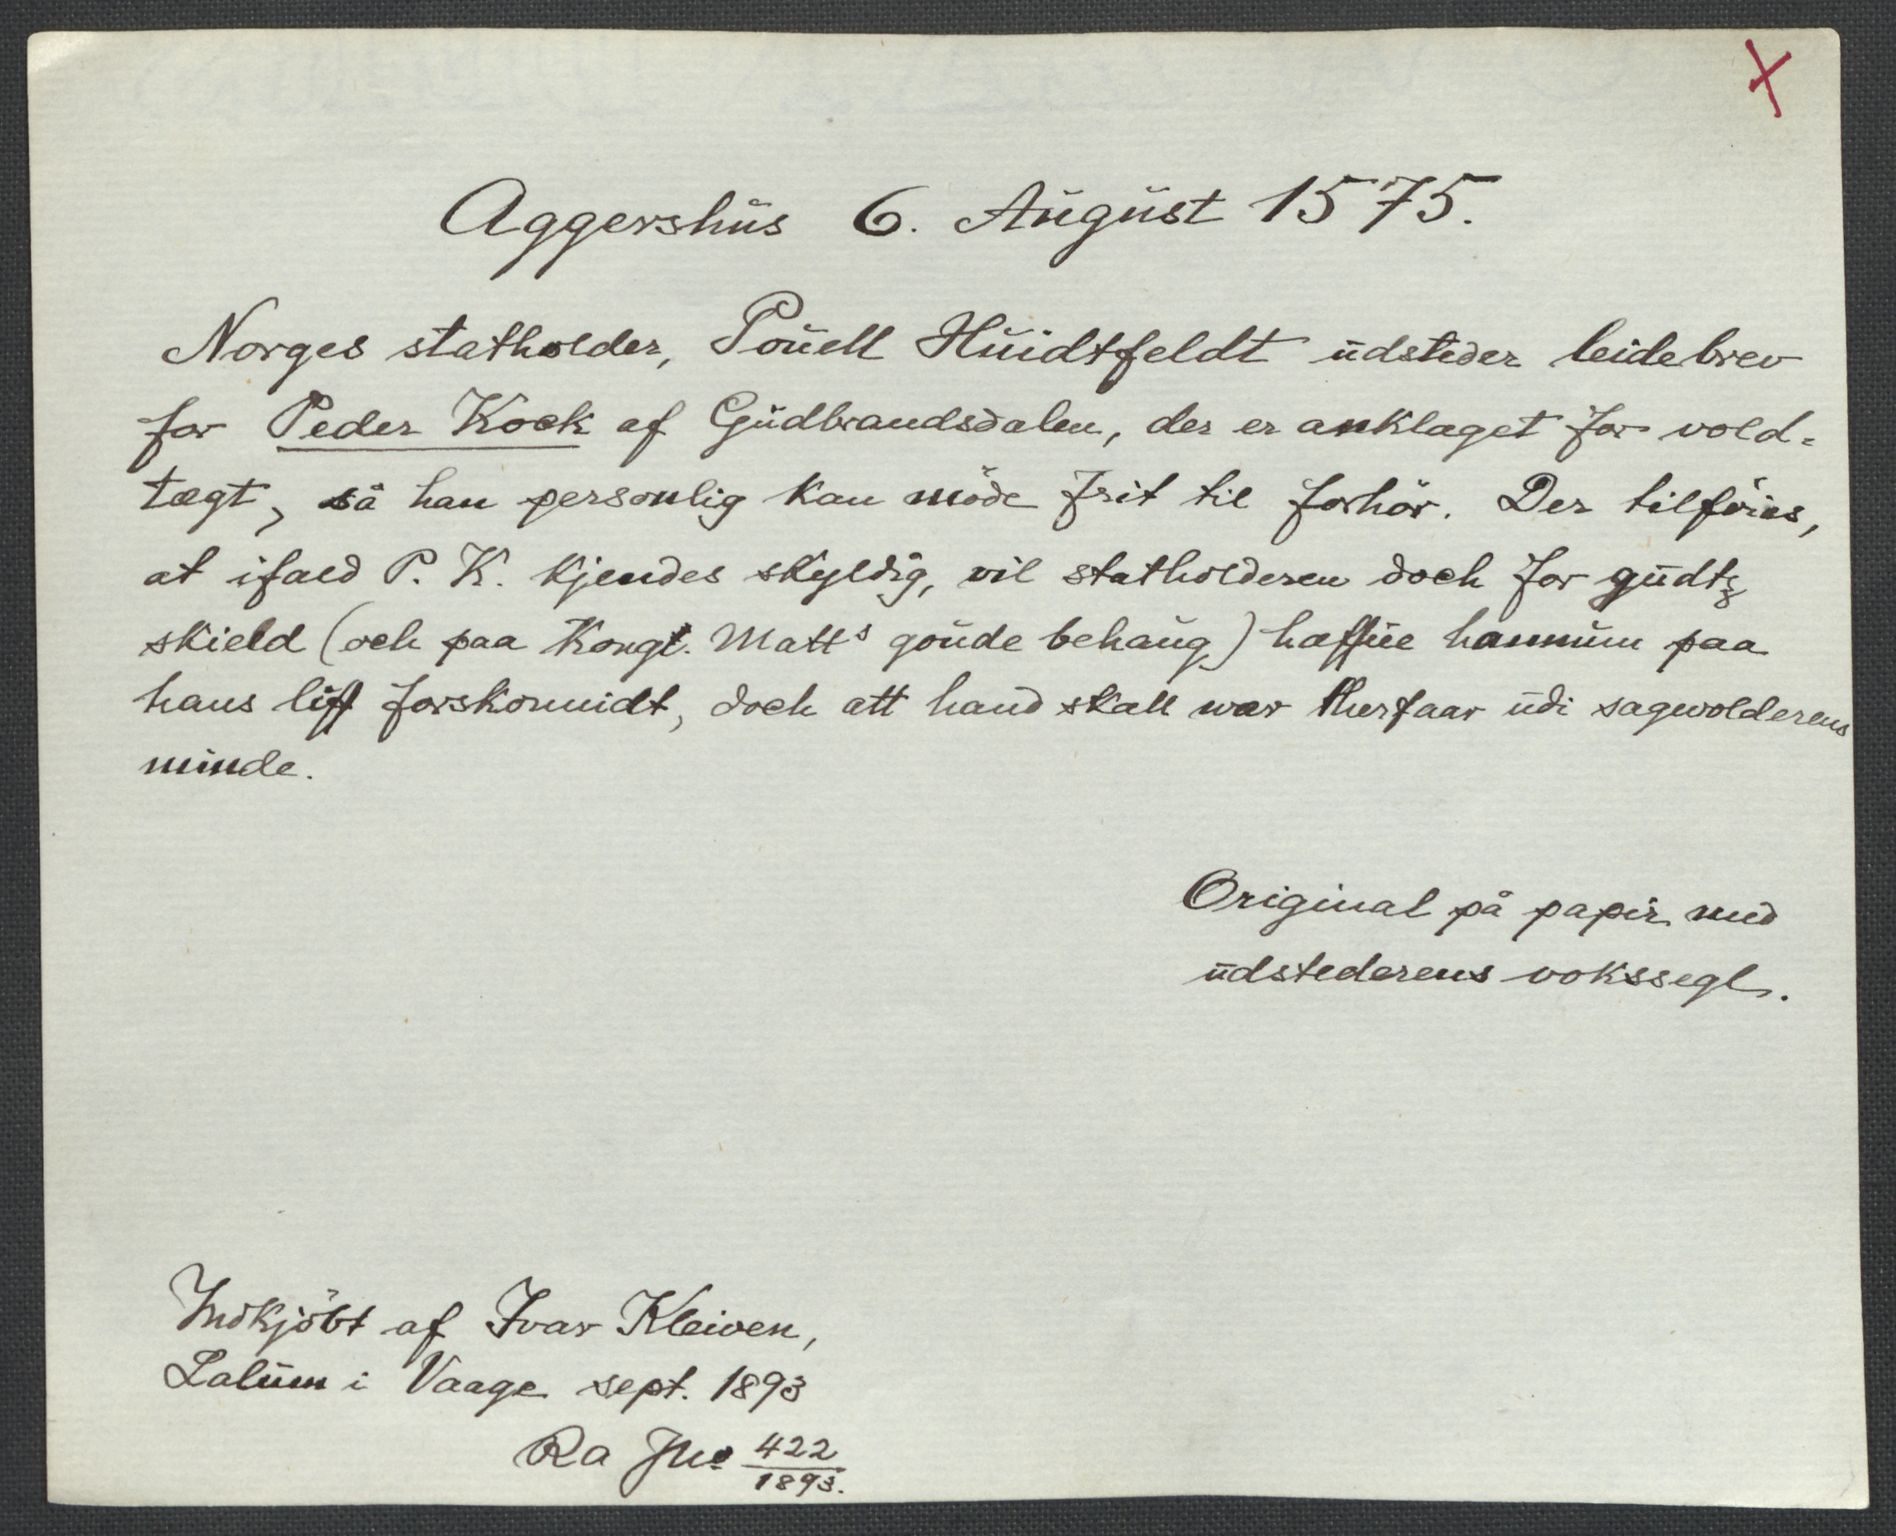 Aggershus 6. August 1575.
Norges statholder, Pouell Huidtfeldt udsteder leidebrev
for Peder Kock af Gudbrandsdalen, der er anklaget for vold-
tægt, så han personlig kan möde frit til forhör. Der tilföies,
at ifald P. K. kjendes skyldig, vil statholderen doch for gudtz
skield (och paa Kongl. Matts goude behaug) haffue hannum paa
hans liff forskonnidt, doch att hand skall wær therfaar udi sagwolderens
minde.
Original på papir med
udstederens vokssegl.
Indkjöbt af Ivar Kleiven,
Lalum i Vaage sept. 1893
Ra Jno 422/1893.